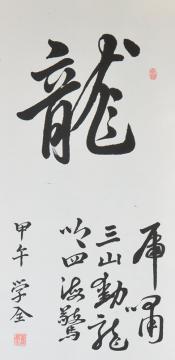 龍
虎啸
三山動龍
吟四海驚
甲午 学全